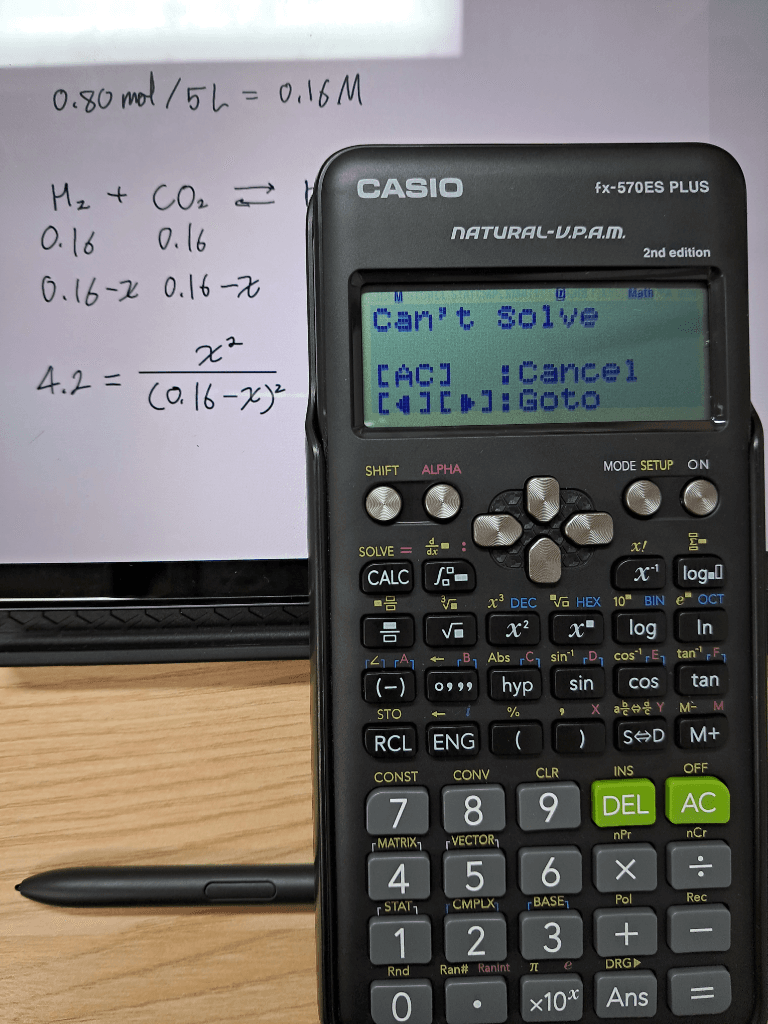 0.80 mol / 5 L = 0.16 M
H₂ + CO₂ ⇌
0.16 0.16
0.16-x 0.16-x
4.2 = x² / (0.16-x)²
CASIO fx-570ES PLUS
NATURAL-V.P.A.M.
2nd edition
M D Math
Can't Solve
[AC] :Cancel
[◀][▶]:Goto
SHIFT ALPHA MODE SETUP ON
SOLVE = d/dx : x! Σ
CALC ∫ x⁻¹ log
³√ x³ DEC √ HEX 10 BIN e OCT
√ x² x log ln
∠ A ← B Abs C sin⁻¹ D cos⁻¹ E tan⁻¹ F
(-) °’’’ hyp sin cos tan
STO ← i % , X a b/c⇔d/c Y M- M
RCL ENG ( ) S⇔D M+
CONST CONV CLR INS OFF
7 8 9 DEL AC
MATRIX VECTOR nPr nCr
4 5 6 × ÷
STAT CMPLX BASE Pol Rec
1 2 3 + −
Rnd Ran# RanInt π e DRG▶
0 . ×10ˣ Ans =